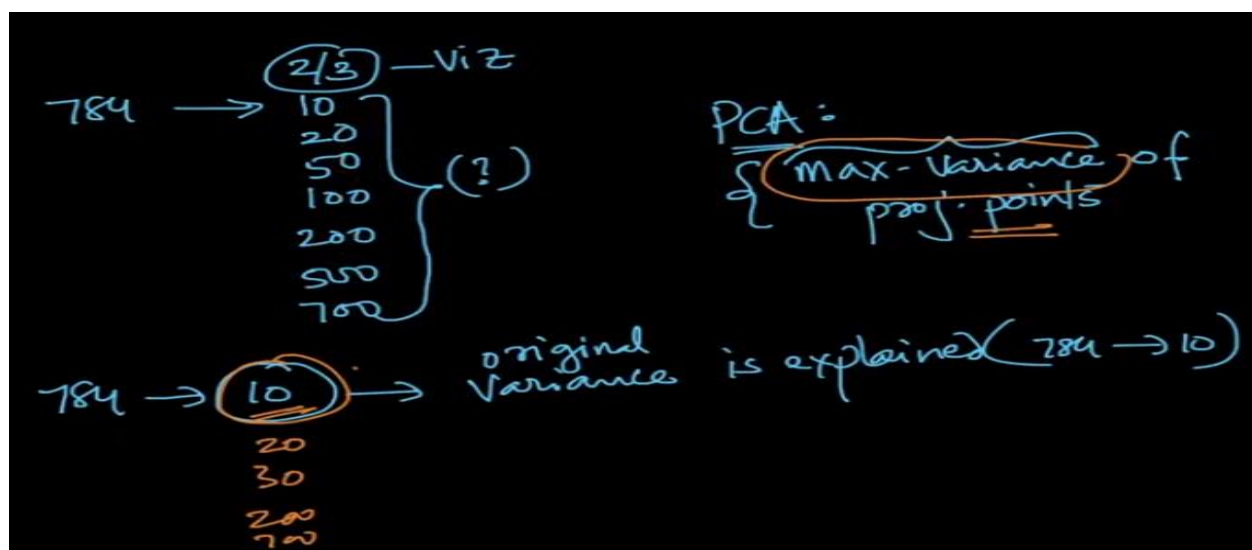 2/3 — Viz
784 → 10
20
50
100
200
500
700
(?)
PCA:
{ max-variance of
proj. points
784 → 10 → original
variance is explained (784 → 10)
20
30
200
700